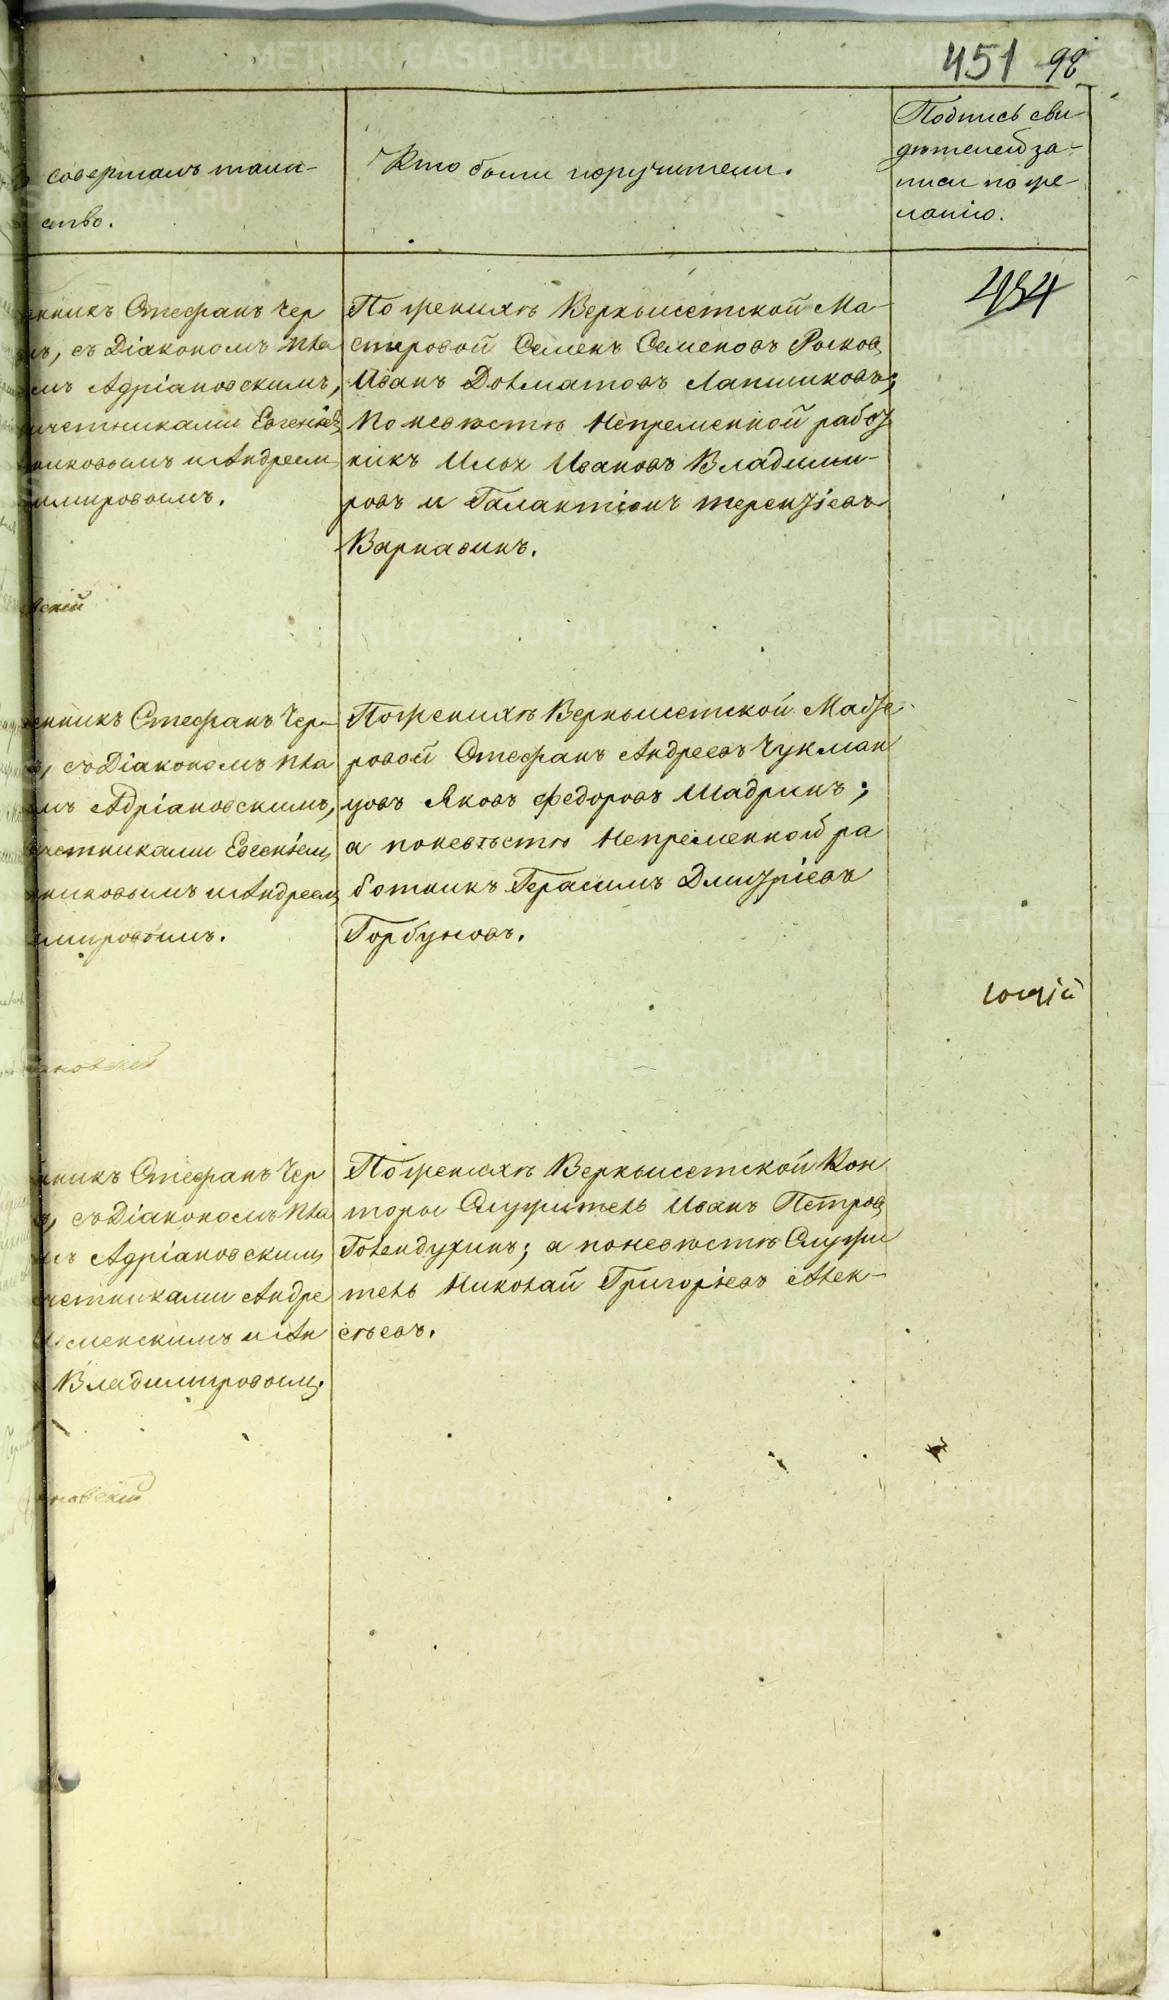 451 98
совершалъ таин-
ство.
Кто были поручители.
Подпись сви-
дѣтелей за-
писи по же-
ланію.
454
нникъ Стефанъ Чер
, съ Діакономъ Ива
мъ Адріановскимъ,
ичетниками Евгеніемъ
никовымъ и Андреем
имировымъ.
вскій
По женихѣ Верхъисетской Ма-
стеровой Семенъ Семеновъ
Иванъ Долматовъ Лапшиковъ;
По невѣстѣ Непременной работ
никъ Илья Ивановъ Владими-
ровъ и Галактіонъ Терентіевъ
Варнавинъ.
енникъ Стефанъ Чер-
, съ Діакономъ Ива
мъ Адріановскимъ,
четниками Евгеніемъ
никовымъ и Андреемъ
имировымъ.
ановскій
По женихѣ Верхъисетской Масте-
ровой Стефанъ Андреевъ Чукман
цовъ Яковъ Федоровъ Шадринъ;
а по невѣстѣ Непременной ра
ботникъ Герасимъ Дмитріевъ
Горбуновъ.
нникъ Стефанъ Чер
, съ Діакономъ Ива
мъ Адріановскимъ
четниками Андре
менскимъ и Ан
Владимировымъ.
новскій
По женихѣ Верхъисетской Кон
торы Служитель Иванъ Петровъ
Голендухинъ; а по невѣстѣ Служи
тель Николай Григорьевъ Алек-
сѣевъ.
METRIKI.GASO-URAL.RU